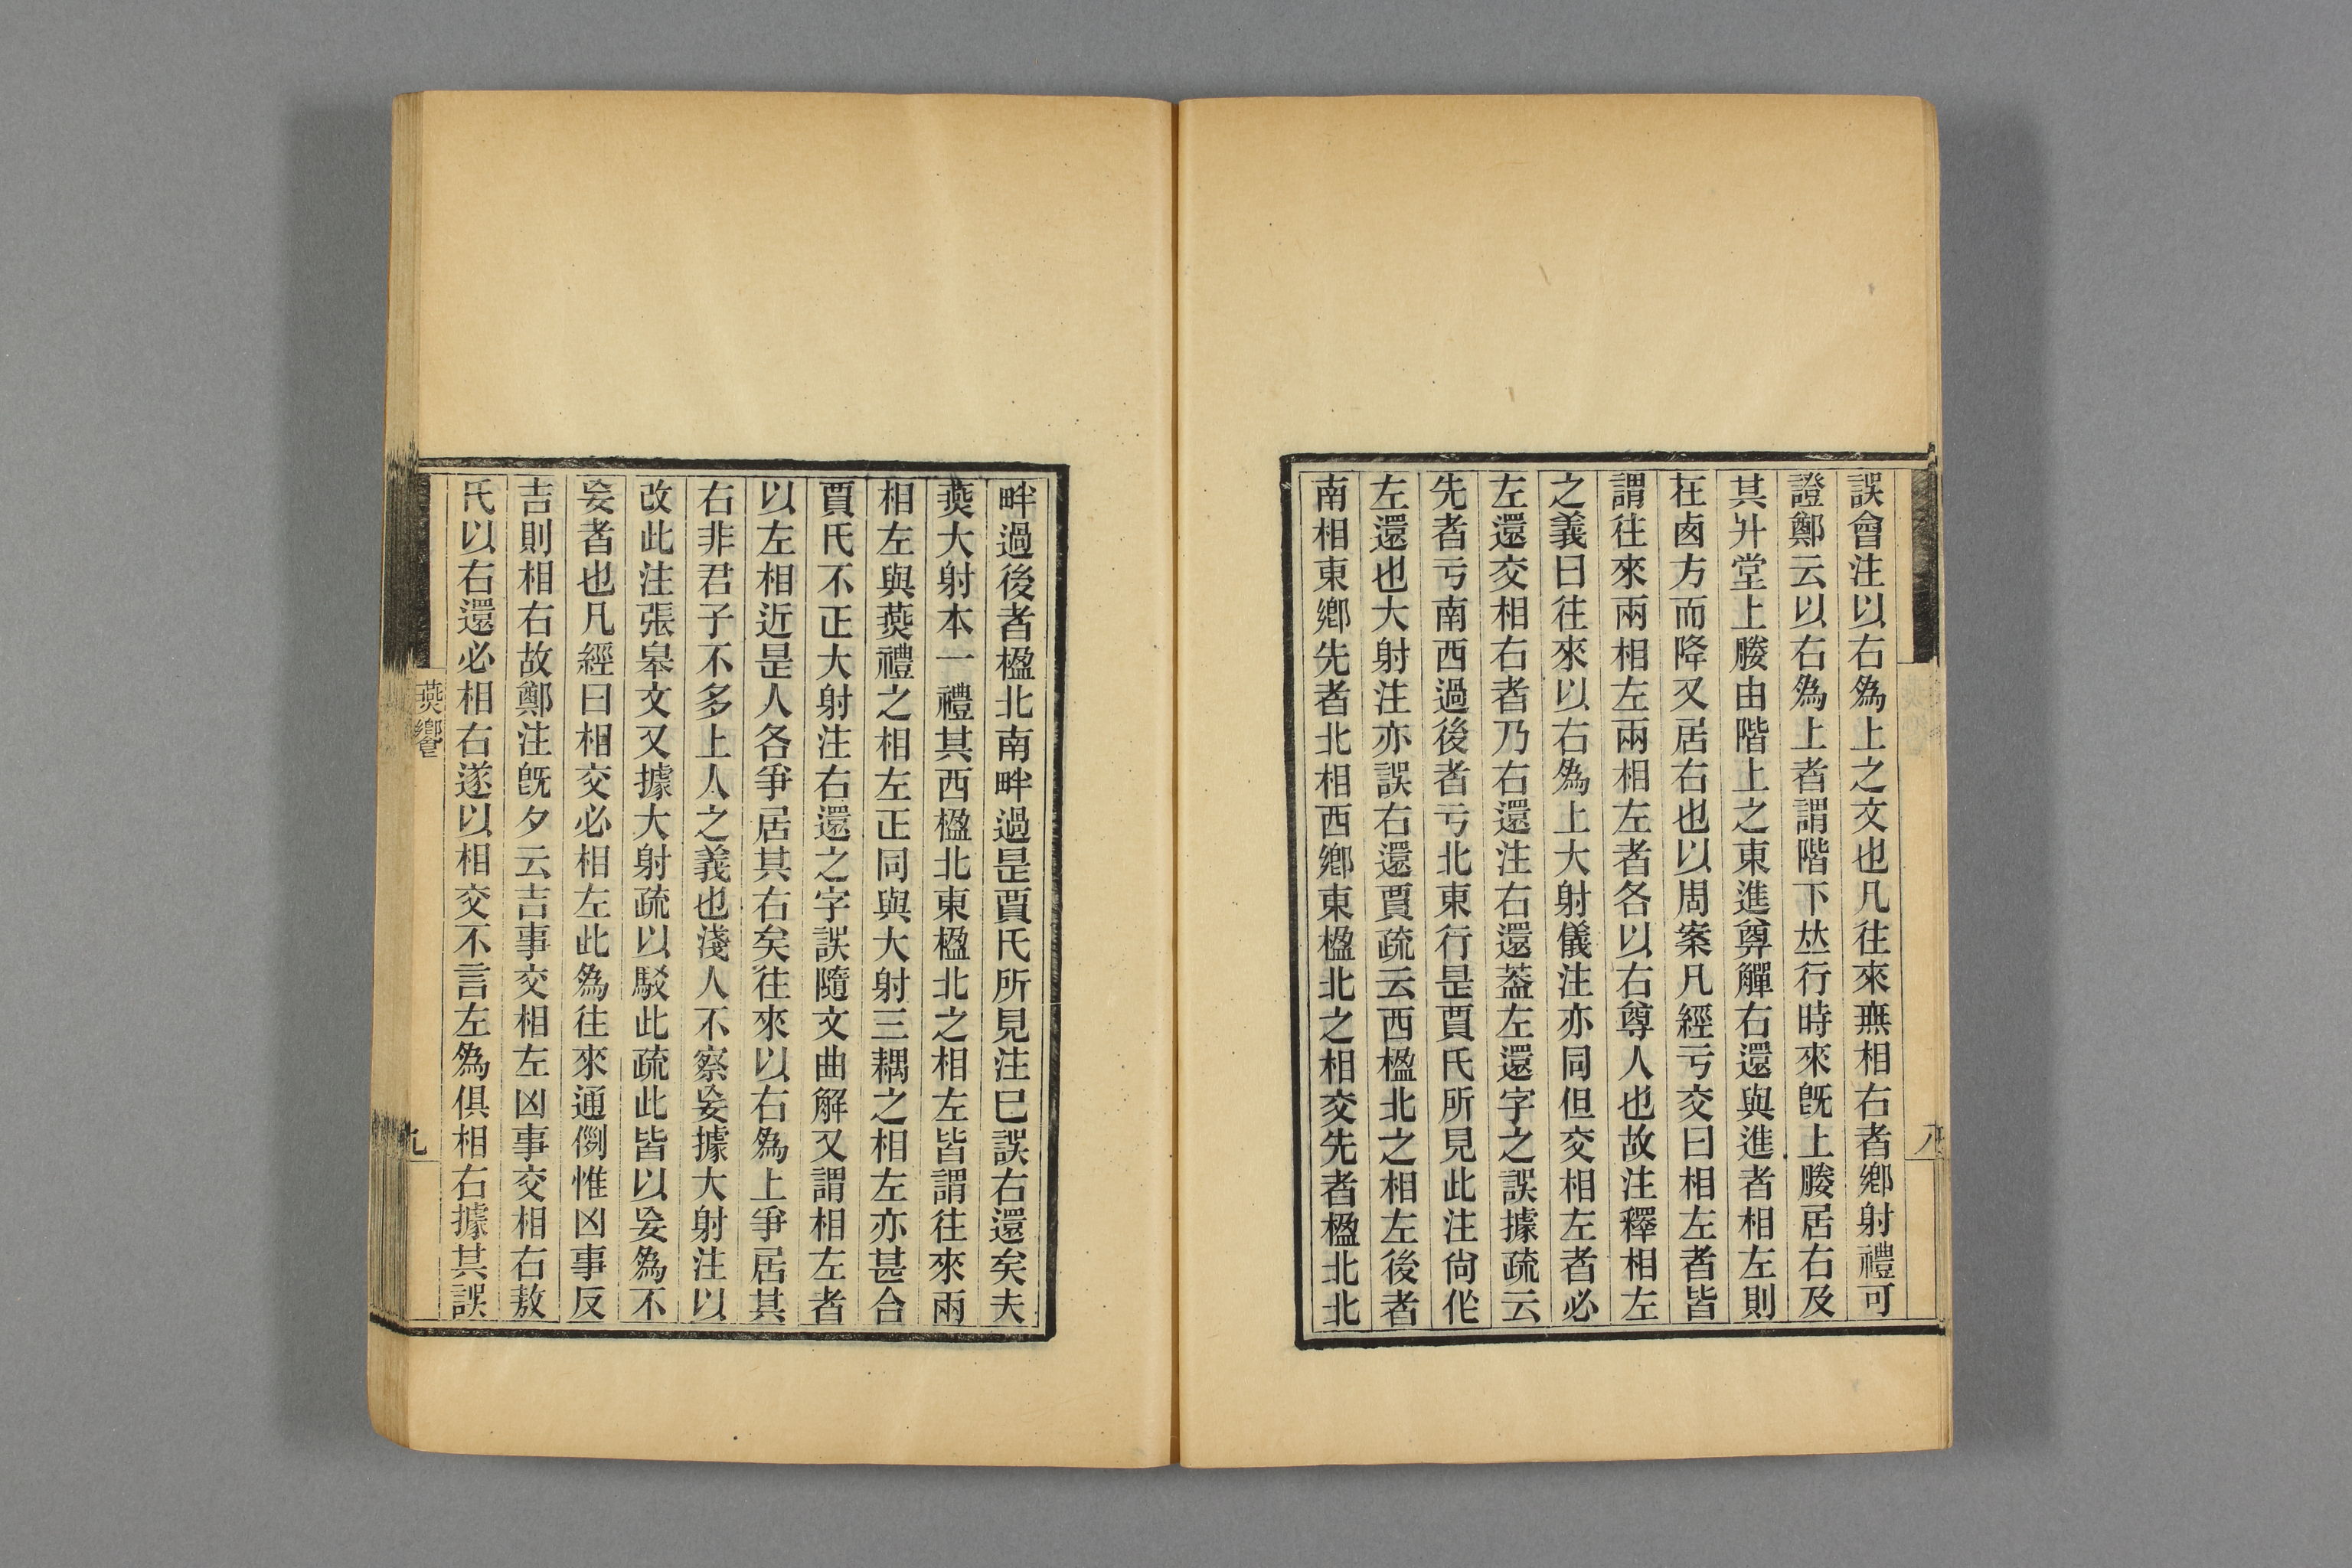 誤會注以右爲上之文也凡往來無相右者鄉射禮可
證鄭云以右爲上者謂階下𠀤行時來旣上媵居右及
其升堂上媵由階上之東進奠觶右還與進者相左則
在卤方而降又居右也以周案凡經亏交曰相左者皆
謂往來兩相左兩相左者各以右尊人也故注釋相左
之義曰往來以右爲上大射儀注亦同但交相左者必
左還交相右者乃右還注右還葢左還字之誤據疏云
先者亏南西過後者亏北東行昰賈氏所見此注尙作
左還也大射注亦誤右還賈疏云西楹北之相左後者
南相東鄉先者北相西鄉東楹北之相交先者楹北北
畔過後者楹北南畔過昰賈氏所見注已誤右還矣夫
燕大射本一禮其西楹北東楹北之相左皆謂往來兩
相左與燕禮之相左正同與大射三耦之相左亦甚合
賈氏不正大射注右還之字誤隨文曲解又謂相左者
以左相近昰人各爭居其右矣往來以右爲上爭居其
右非君子不多上人之義也淺人不察妄據大射注以
改此注張皋文又據大射疏以駁此疏此皆以妄爲不
妄者也凡經曰相交必相左此爲往來通例惟凶事反
吉則相右故鄭注旣夕云吉事交相左凶事交相右敖
氏以右還必相右遂以相交不言左爲俱相右據其誤
燕饗
八
九